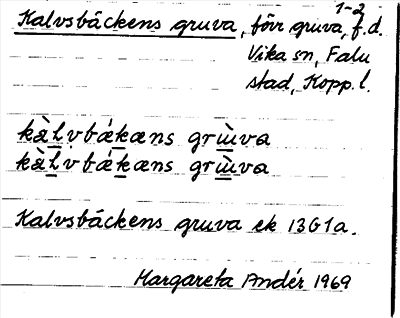 Kalvsbäckens gruva, förr gruva, 1-2 f.d.
Vika sn, Falu
stad, Kopp. l.
kàLvbǽkæns grùva
kàLvbækæns grùva
Kalvsbäckens gruva ek 13G1a.
Margareta Andér 1969